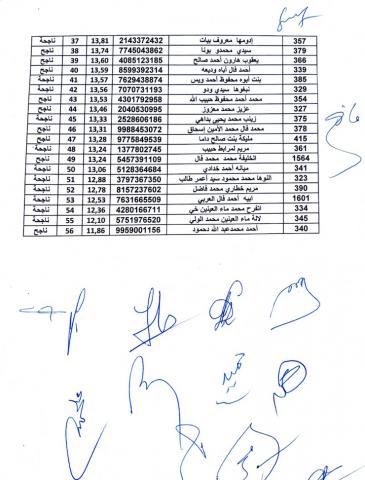 357 إدومها معروف بيات 2143372432 13,81 37 ناجحة
379 سيدي محمدو بونا 7745043862 13,74 38 ناجح
366 يعقوب هارون أحمد صالح 4085123185 13,60 39 ناجح
339 أحمد فال أباه وديعه 8599392314 13,59 40 ناجح
385 بنت أبوه محفوظ أحمد ويس 7629438874 13,57 41 ناجحة
329 نبغوها سيدي ودو 7070731193 13,56 42 ناجحة
354 محمد أحمد محفوظ حبيب الله 4301792958 13,53 43 ناجح
327 عزيز محمد معزوز 2040530995 13,46 44 ناجح
375 زينب محمد يحيى بداهي 2528606186 13,33 45 ناجحة
378 محمد فال محمد الأمين إسحاق 9988453072 13,31 46 ناجح
415 مليكة بنت صالح داما 9775849539 13,28 47 ناجحة
361 مريم لمرابط حبيب 1377802745 13,24 48 ناجحة
1564 الخليفة محمد محمد فال 5457391109 13,24 49 ناجح
341 ميانه أحمد خدادي 5128364684 13,06 50 ناجحة
323 النوها محمد محمود سيد أعمر طالب 3797367350 12,88 51 ناجحة
390 مريم خطاري محمد فاضل 8157237602 12,78 52 ناجحة
1601 ابيه أحمد فال العربي 7631665509 12,53 53 ناجح
334 اتفرح محمد ماء العينين خي 4280166711 12,36 54 ناجحة
345 لالة ماء العينين محمد الولي 5751976520 12,10 55 ناجحة
340 أحمد محمدعبد الله دحمود 9959001156 11,86 56 ناجح